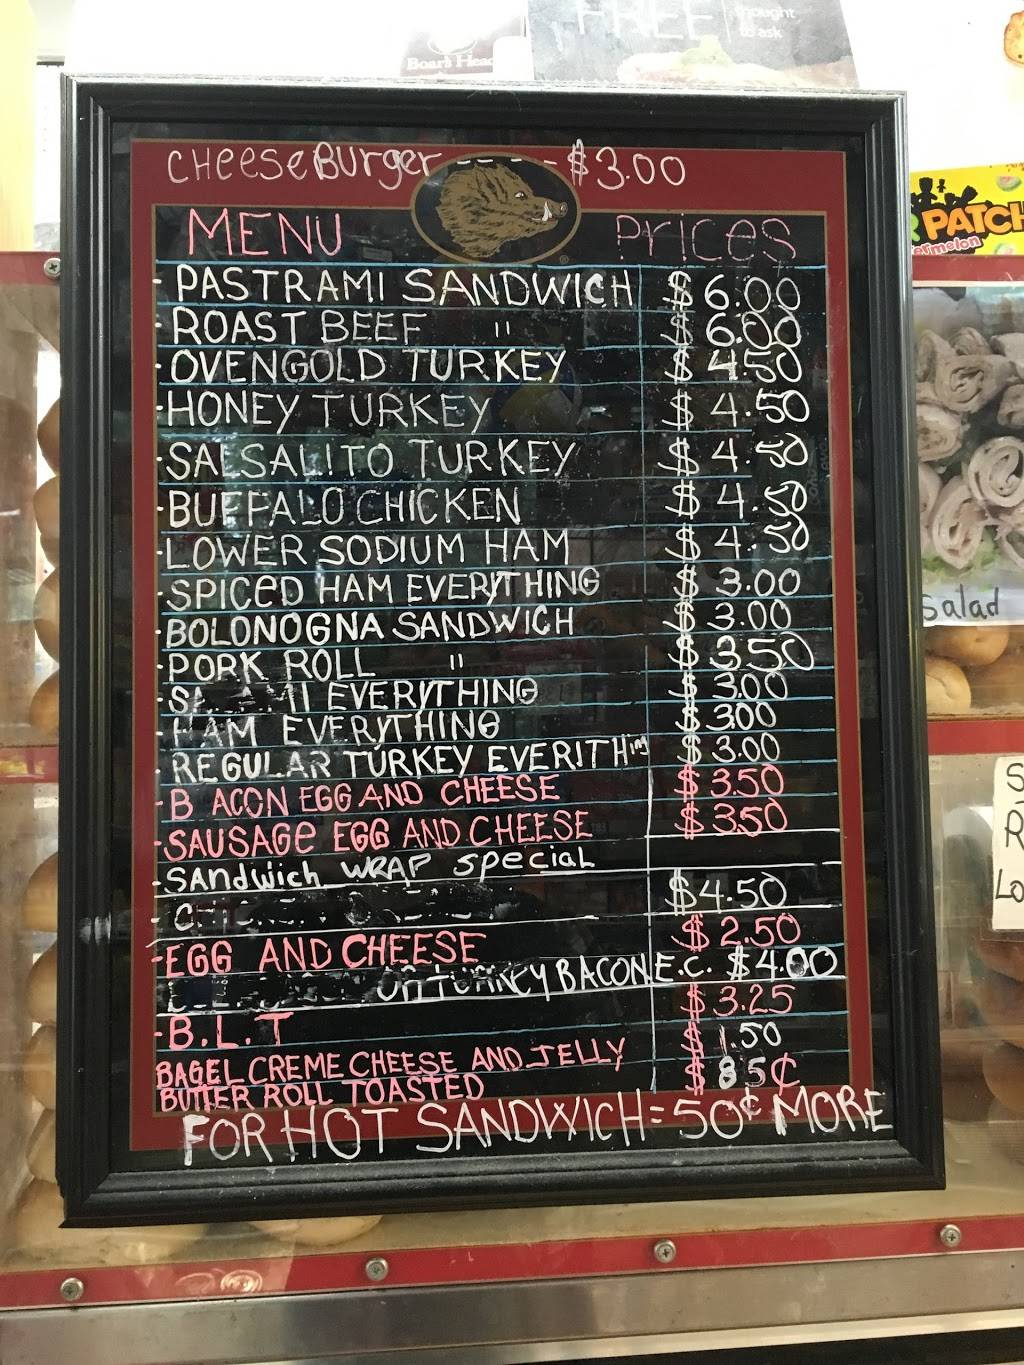 FREE
thought
to ask
Boar's Head
CHeeseBurger - - - - $3.00
MENU Prices
PATCH
- PASTRAMI SANDWICH $ 6.00
- ROAST BEEF " $ 6.00
- OVENGOLD TURKEY $ 4.50
- HONEY TURKEY $ 4.50
- SALSALITO TURKEY $ 4.50
- BUFFALO CHICKEN $ 4.50
- LOWER SODIUM HAM $ 4.50
- SPICED HAM EVERYTHING $ 3.00
- BOLONOGNA SANDWICH $ 3.00
- PORK ROLL " $ 3.50
- SALAMI EVERYTHING $ 3.00
- HAM EVERYTHING $ 3.00
- REGULAR TURKEY EVERITHing $ 3.00
- BACON EGG AND CHEESE $ 3.50
- SAUSAGE EGG AND CHEESE $ 3.50
- SANdwich WRAP Special
$4.50
- EGG AND CHEESE $ 2.50
BACON E.C. $4.00
- B.L.T $ 3.25
BAGEL CREME CHEESE AND JELLY $ 1.50
BUTTER ROLL TOASTED $ 85¢
FOR HOT SANDWICH = 50¢ MORE
Salad